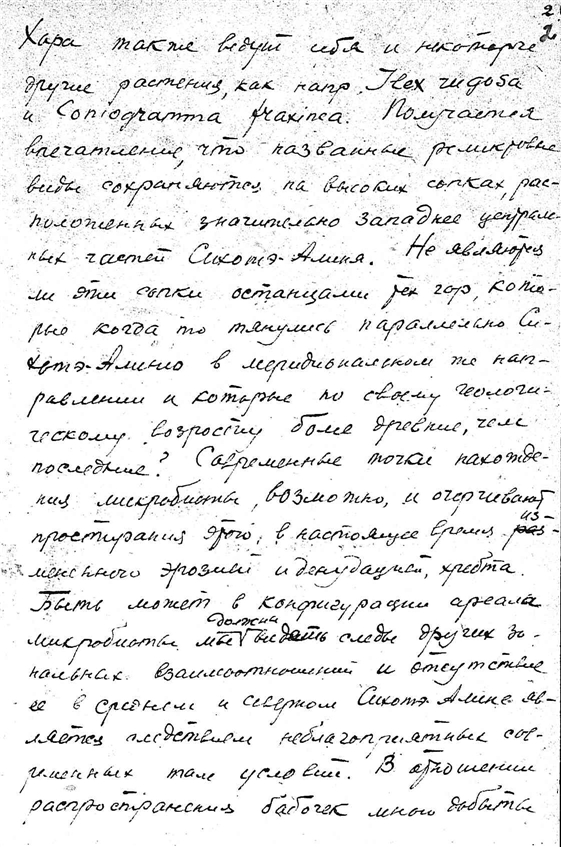 2
2
Хора также ведут себя и некоторые
другие растения, как напр. Ilex rugosa
и Coniogramma fraxinea. Получается
впечатление, что названные реликтовые
виды сохраняются на высоких сопках, рас-
положенных значительно западнее централь-
ных частей Сихотэ-Алиня. Не являются
ли эти сопки останцами тех гор, кото-
рые когда то тянулись параллельно Си-
хотэ-Алиню в меридиональном же нап-
равлении и которые по своему геологи-
ческому возросту более древние, чем
последние? Современные точки нахожде-
ния микробиоты, возможно, и очерчивают
простирания этого, в настоящее время из-
мененного эрозией и денудацией, хребта.
Быть может в конфигурации ареала
микробиоты мы должны видеть следы других зо-
нальных взаимоотношений и отсутствие
ее в среднем и северном Сихотэ-Алине яв-
ляется следствием неблагоприятных сов-
ременных там условий. В отношении
распространения бабочек мною добыты